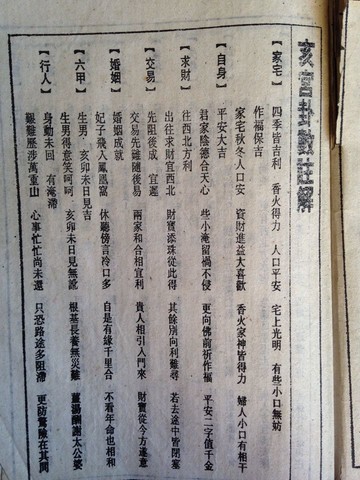 亥宮卦數註解
【家宅】 四季皆吉利 香火得力 人口平安 宅上光明 有些小口無妨
作福保吉
家宅秋冬人口安 資財進益大喜歡 香火家神皆得力 婦人小口有相干
【自身】 平安大吉
君家陰德合天心 些小淹留禍不侵 更向佛前祈作福 平安二字值千金
【求財】 往西北方利
出往求財宜西北 財寶添珠從此得 其餘別向利難尋 若去途中皆閉塞
【交易】 先阻後成 宜遲
交易先難隨後易 兩家和合相宜利 貴人相引入門來 財寶從今方遂意
【婚姻】 婚姻成就
妃子飛入鳳凰窩 休聽傍言冷口多 自是有緣千里合 不看年命也相和
【六甲】 生男 亥卯未日見吉
生男得意笑呵呵 亥卯未日見無訛 根基長養無災難 薑湯酬謝太公婆
【行人】 身動未回 有淹滯
艱難歷涉萬重山 心事忙忙尚未還 只恐路途多阻滯 更防驚險在其間